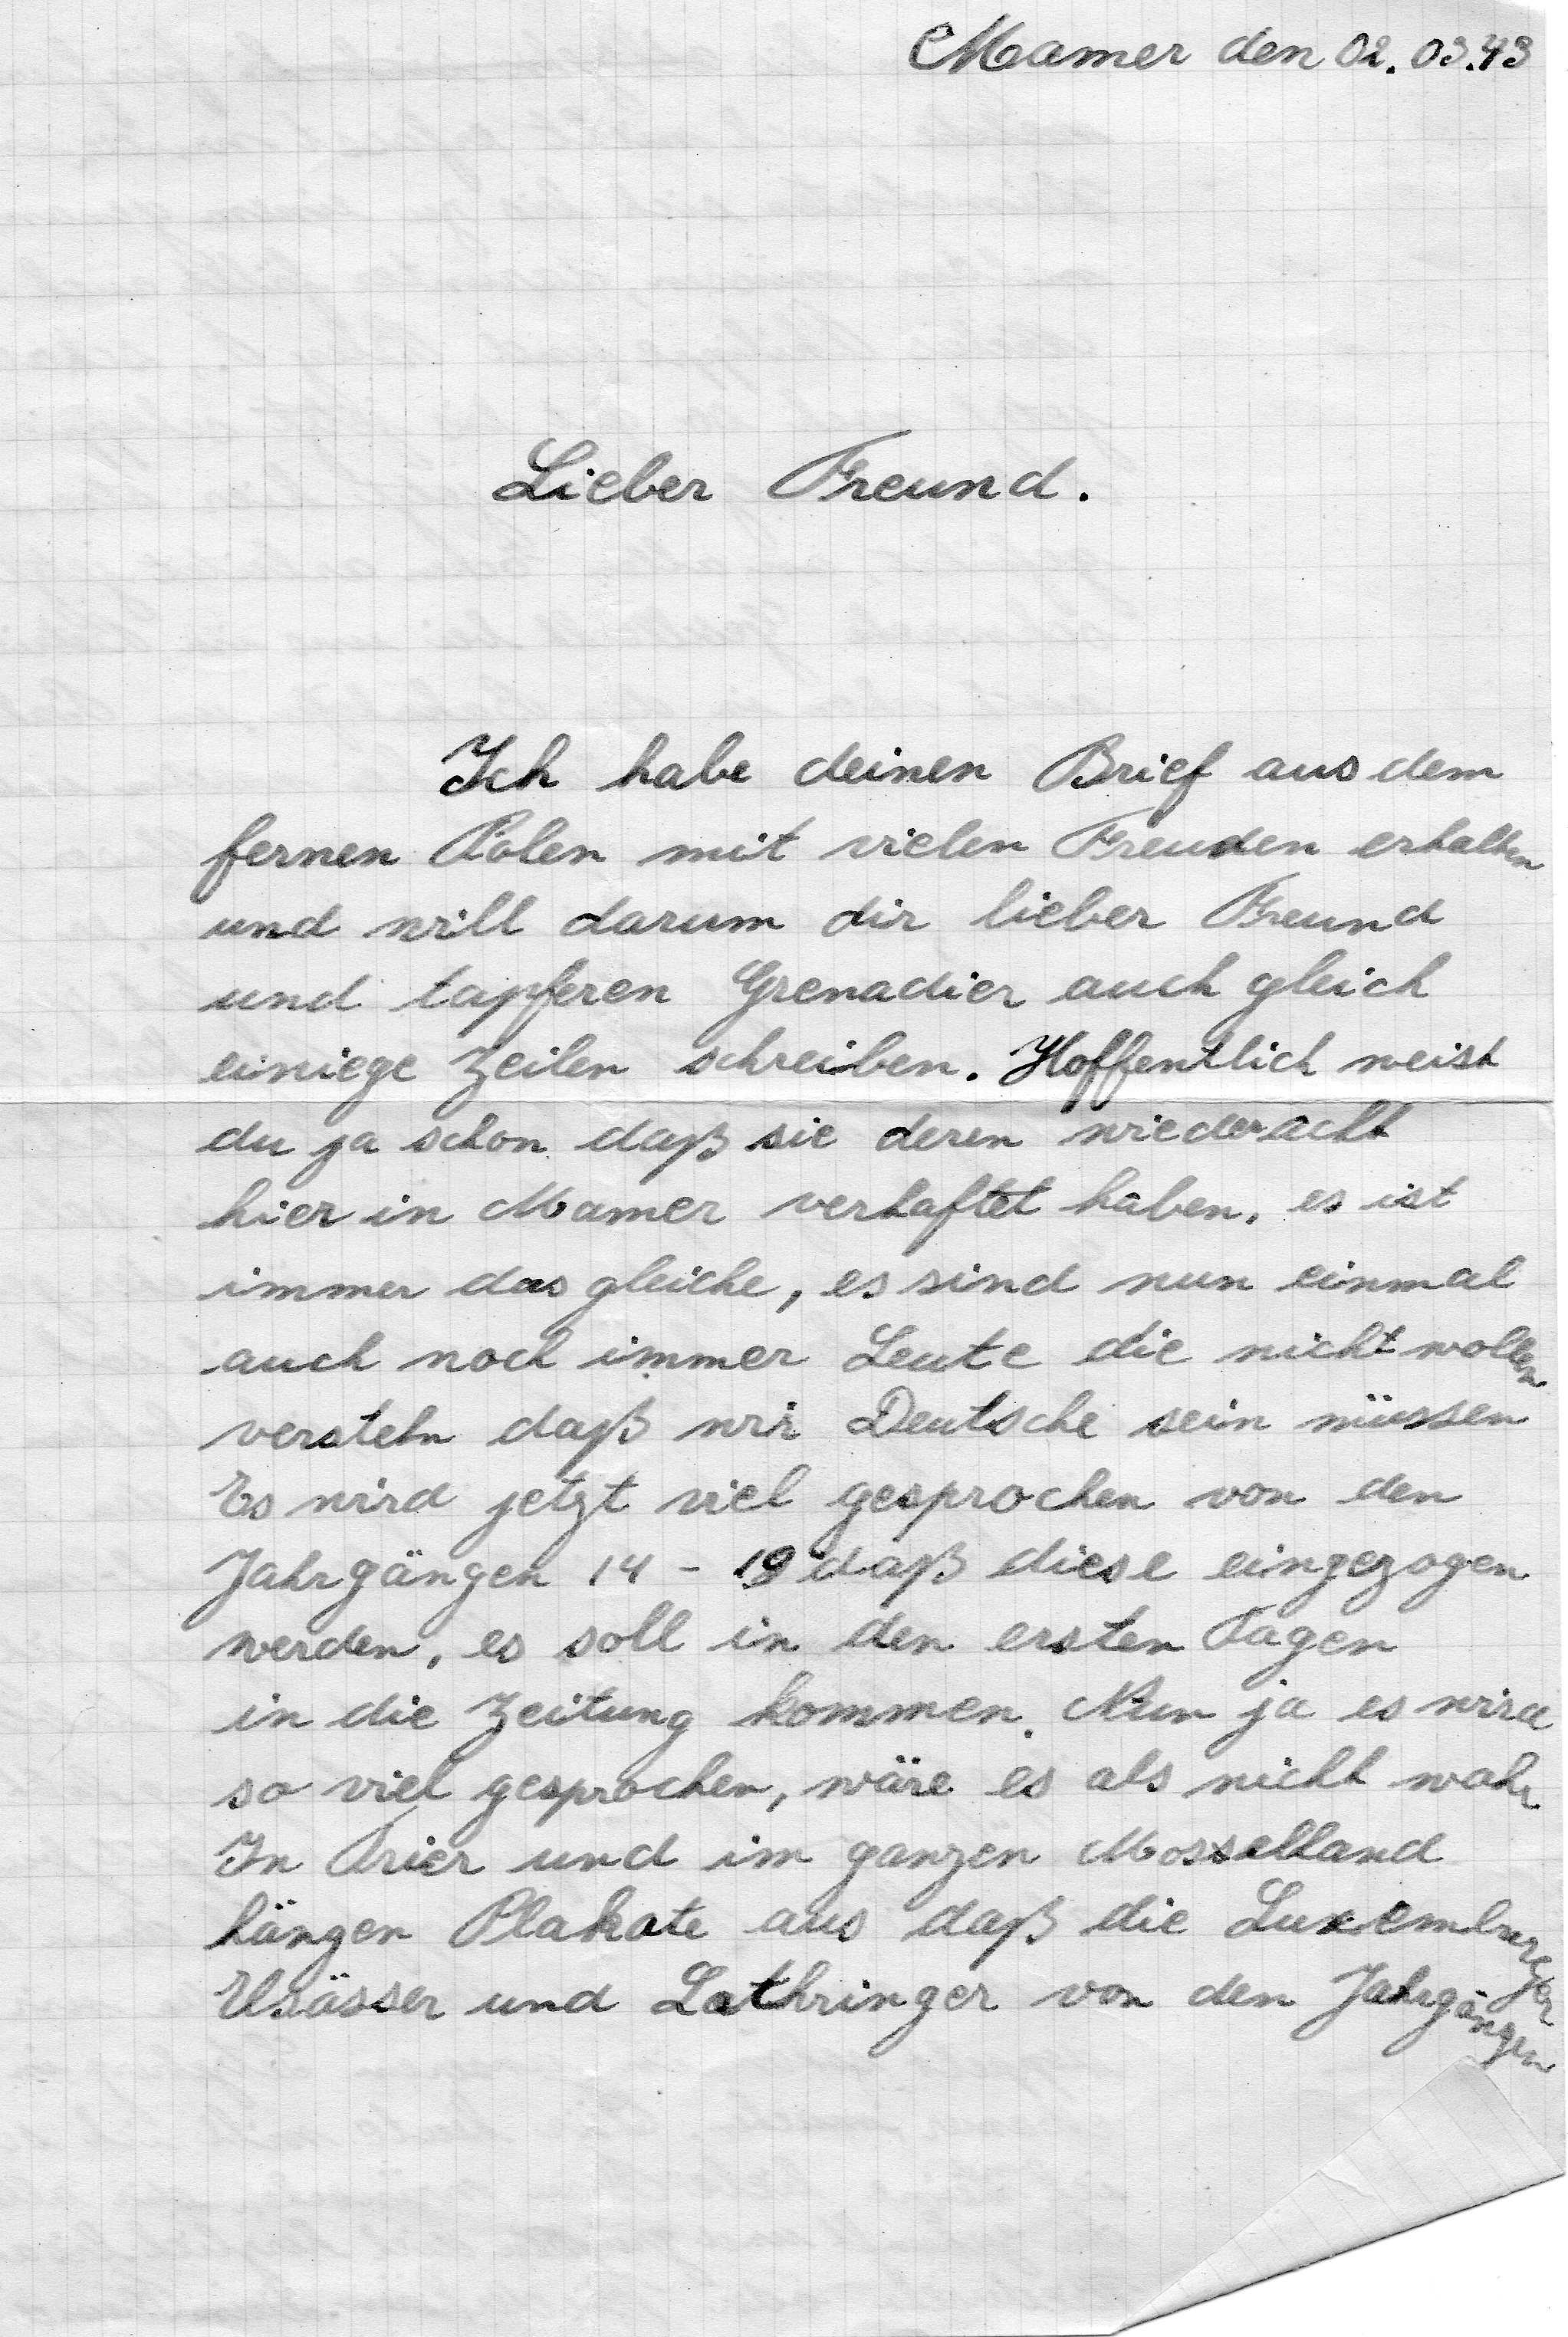 Mamer den 02.03.43
Lieber Freund.
Ich habe deinen Brief aus dem
fernen Polen mit vielen Freuden erhalten
und will darum dir lieber Freund
und tapferen Grenadier auch gleich
einiege Zeilen schreiben. Hoffentlich weist
du ja schon daß sie deren wieder acht
hier in Mamer verhaftet haben, es ist
immer das gleiche, es sind nun einmal
auch noch immer Leute die nicht wollen
verstehn daß wir Deutsche sein müssen
Es wird jetzt viel gesprochen von den
Jahrgängen 14 - 19 daß diese eingezogen
werden, es soll in den ersten Tagen
in die Zeitung kommen. Nun ja es wird
so viel gesprochen, wäre es als nicht wahr
In Trier und im ganzen Mosselland
hängen Plakate aus daß die Luxemburger
Elsässer und Lothringer von den Jahrgängen